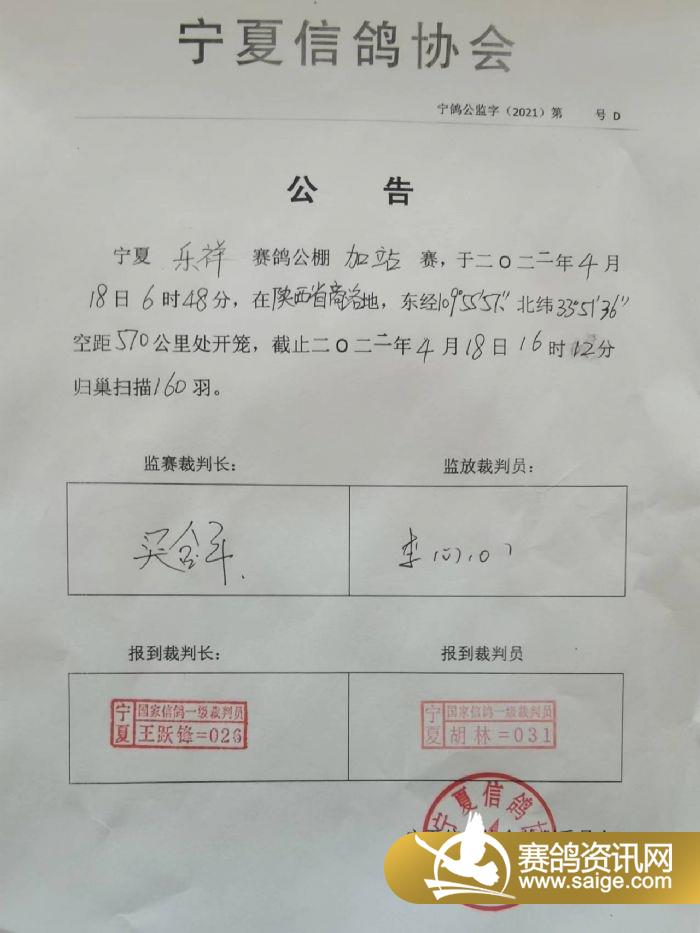 宁夏信鸽协会
宁鸽公监字（2021）第 号 D
公 告
宁夏 乐祥 赛鸽公棚 加站 赛，于二〇二二年4月
18日6时48分，在陕西省商洛地，东经109°55′51″北纬33°51′36″
空距570公里处开笼，截止二〇二二年4月18日16时12分
归巢扫描160羽。
监赛裁判长：
监放裁判员：
报到裁判长：
报到裁判员
宁夏
国家信鸽一级裁判员
王跃锋=026
宁夏
国家信鸽一级裁判员
胡林=031
宁夏信鸽
赛鸽资讯网
www.saige.com